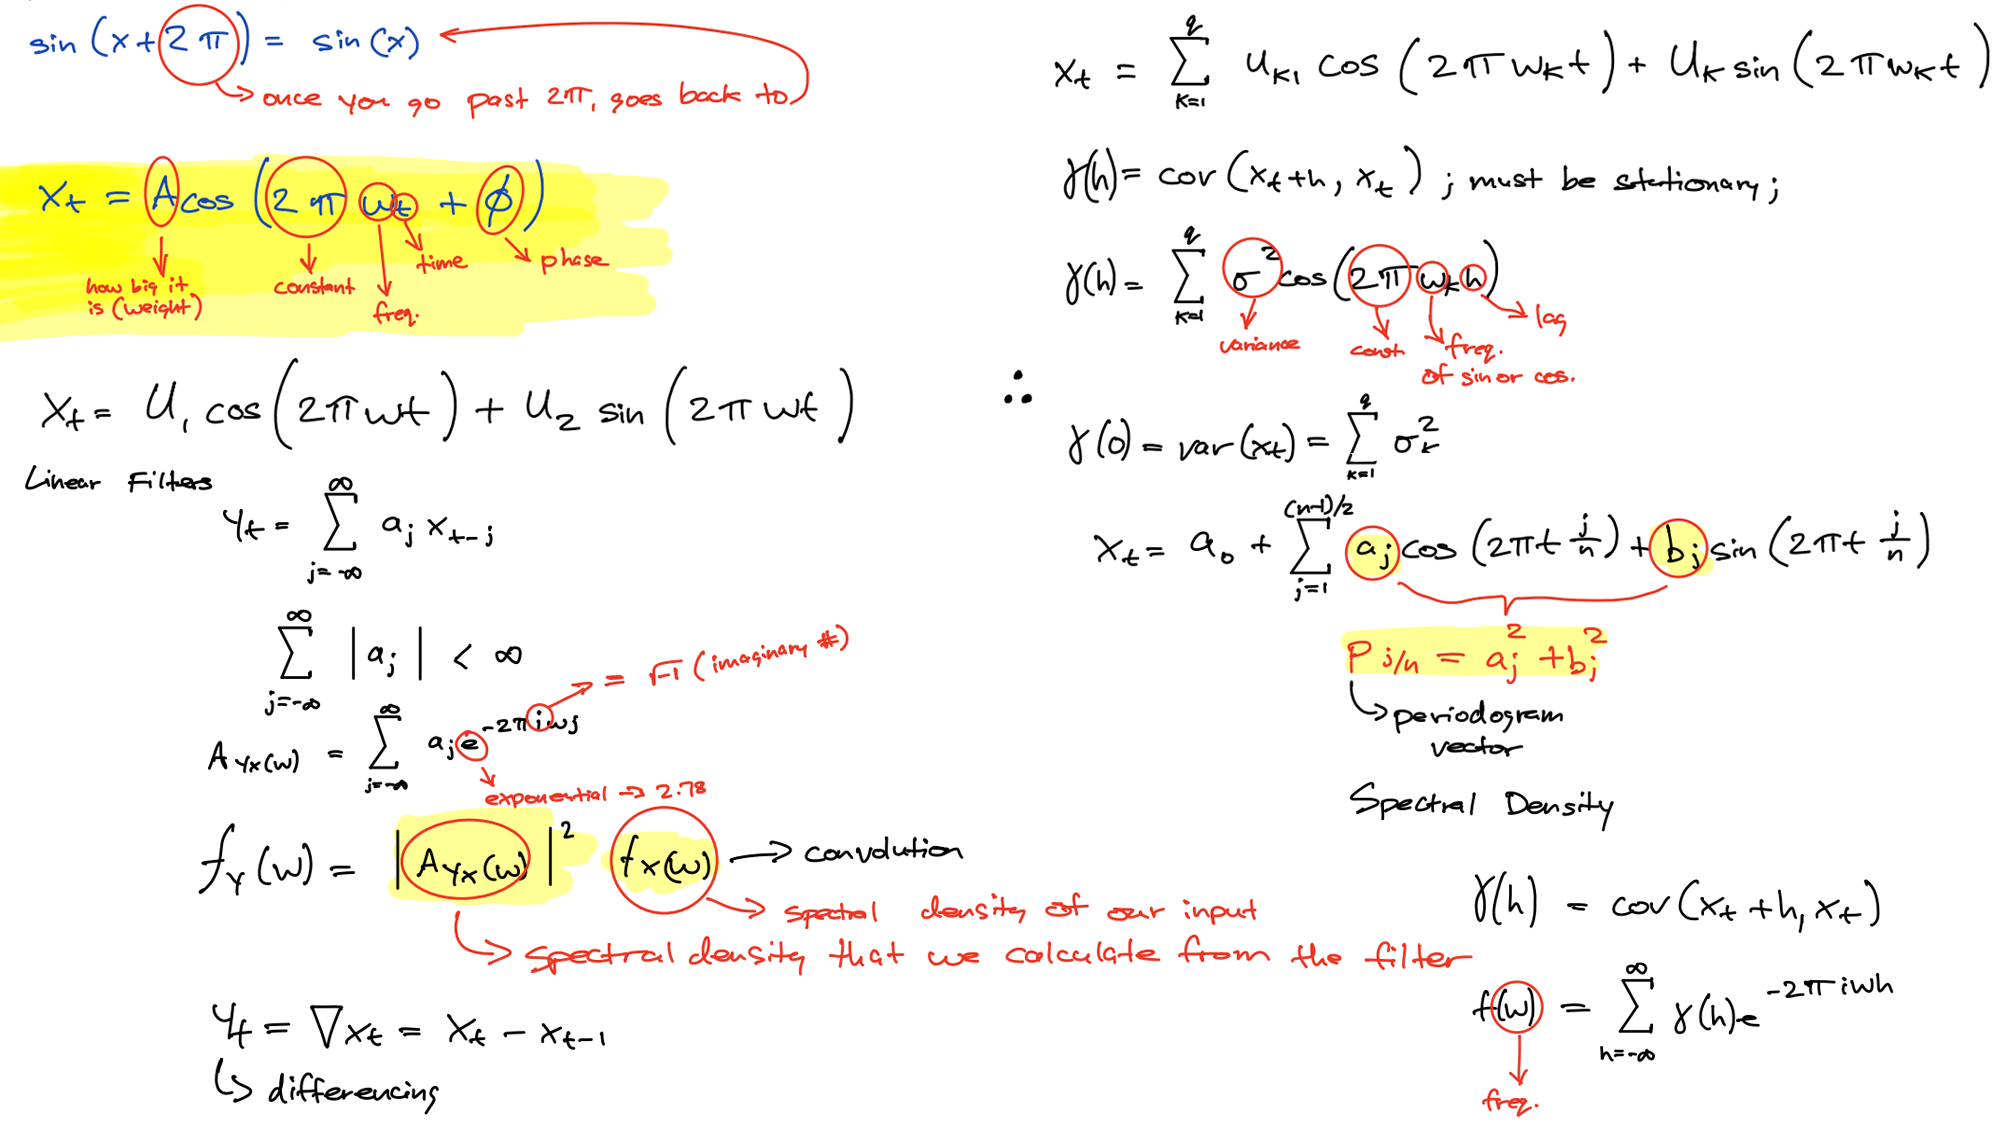 sin (x + 2π) = sin(x)
once you go past 2π, goes back to
x_t = A cos (2π ωt + φ)
how big it is (weight)
constant
freq.
time
phase
x_t = U_1 cos (2πωt) + U_2 sin (2πωt)
Linear Filters
y_t = ∑_{j=-∞}^{∞} a_j x_{t-j}
∑_{j=-∞}^{∞} |a_j| < ∞
= √-1 (imaginary #)
A_{yx}(ω) = ∑_{j=-∞}^{∞} a_j e^{-2πiωj}
exponential → 2.78
f_y(ω) = |A_{yx}(ω)|^2 f_x(ω) → convolution
spectral density of our input
spectral density that we calculate from the filter
y_t = ∇x_t = x_t - x_{t-1}
differencing
x_t = ∑_{k=1}^{q} U_{k1} cos (2πω_k t) + U_k sin (2πω_k t)
γ(h) = cov (x_t+h, x_t) ; must be stationary ;
γ(h) = ∑_{k=1}^{q} σ^2 cos (2πω_k h)
variance
const
freq. of sin or cos.
lag
∴
γ(0) = var(x_t) = ∑_{k=1}^{q} σ_k^2
x_t = a_0 + ∑_{j=1}^{(n-1)/2} a_j cos (2πt j/n) + b_j sin (2πt j/n)
P_{j/n} = a_j^2 + b_j^2
periodogram
vector
Spectral Density
γ(h) = cov (x_t+h, x_t)
f(ω) = ∑_{h=-∞}^{∞} γ(h) e^{-2πiωh}
freq.